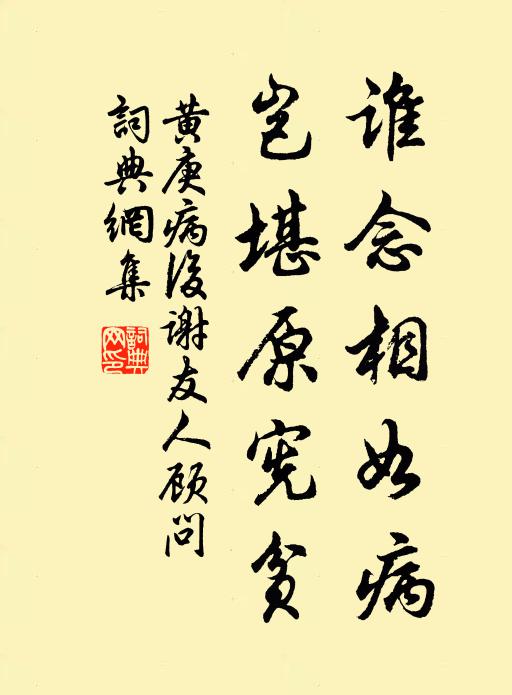 谁念相如病
岂堪原宪贫
黄庚病後谢友人顾问
詞典網集
詞典
网印